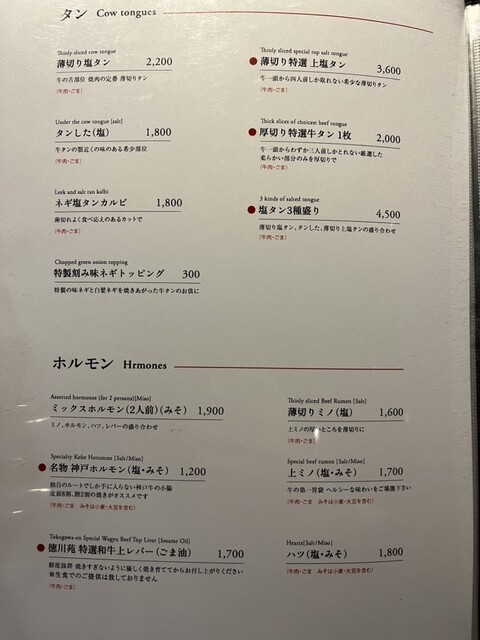 タン Cow tongues
Thinly sliced cow tongue
薄切り塩タン 2,200
牛の舌部位 焼肉の定番 薄切りタン
(牛肉・ごま)
Thinly sliced special top salt tongue
薄切り特選 上塩タン 3,600
牛一頭から四人前しか取れない希少な薄切りタン
(牛肉・ごま)
Under the cow tongue [salt]
タンした(塩) 1,800
牛タンの顎近くの味のある希少部位
(牛肉・ごま)
Thick slices of choicest beef tongue
厚切り特選牛タン 1枚 2,000
牛一頭からわずか三人前しかとれない厳選した
柔らかい部分のみを厚切りで
(牛肉・ごま)
Leek and salt tan kalbi
ネギ塩タンカルビ 1,800
歯切れよく食べ応えのあるカットで
(牛肉・ごま)
3 kinds of salted tongue
塩タン3種盛り 4,500
薄切り塩タン、タンした、薄切り上塩タンの盛り合わせ
(牛肉・ごま)
Chopped green onion topping
特製刻み味ネギトッピング 300
特製の味ネギと白髪ネギを焼きあがった牛タンのお供に
ホルモン Hrmones
Assorted hormones (for 2 persons)[Miso]
ミックスホルモン(2人前)(みそ) 1,900
ミノ、ホルモン、ハツ、レバーの盛り合わせ
Thinly sliced Beef Rumen [Salt]
薄切りミノ(塩) 1,600
上ミノの厚いところを薄切りに
(牛肉・ごま)
Specialty Kobe Horumon [Salt/Miso]
名物 神戸ホルモン(塩・みそ) 1,200
独自のルートでしか手に入らない神戸牛の小腸
皮面8割、脂2割の焼きがオススメです
(牛肉・ごま みそは小麦・大豆を含む)
Special beef rumen [Salt/Miso]
上ミノ(塩・みそ) 1,700
牛の第一胃袋 ヘルシーな味わいをご堪能下さい
(牛肉・ごま みそは小麦・大豆を含む)
Tokugawa-en Special Wagyu Beef Top Liver [Sesame Oil]
徳川苑 特選和牛上レバー(ごま油) 1,700
鮮度抜群 焼きすぎないように優しく焼き育ててからお召し上がりください
※生食でのご提供は致しておりません
(牛肉・ごま)
Hearts[Salt/Miso]
ハツ(塩・みそ) 1,800
(牛肉・ごま みそは小麦・大豆を含む)